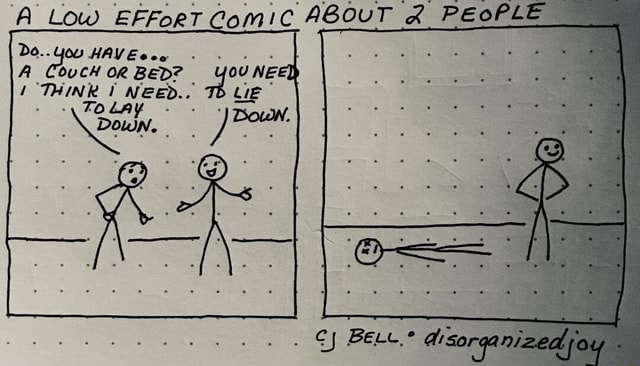 A LOW EFFORT COMIC ABOUT 2 PEOPLE
DO.. YOU HAVE...
A COUCH OR BED?
I THINK I NEED..
TO LAY
DOWN.
YOU NEED
TO LIE
DOWN.
CJ BELL. disorganizedjoy